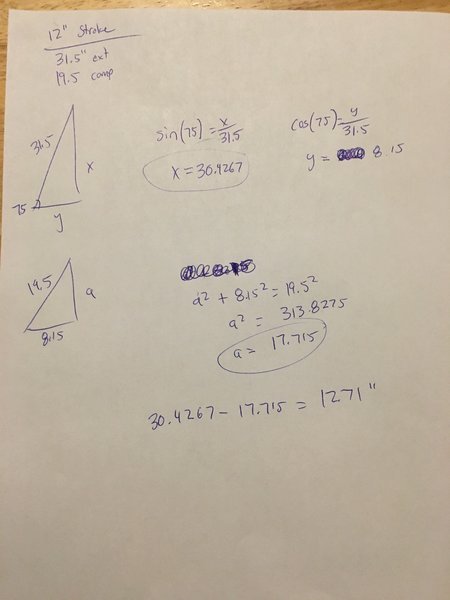 12" Stroke
31.5" ext
19.5 comp
31.5
x
75
y
sin(75) = x/31.5
x = 30.4267
cos(75) = y/31.5
y = 8.15
19.5
a
8.15
a² + 8.15² = 19.5²
a² = 313.8275
a = 17.715
30.4267 - 17.715 = 12.71"